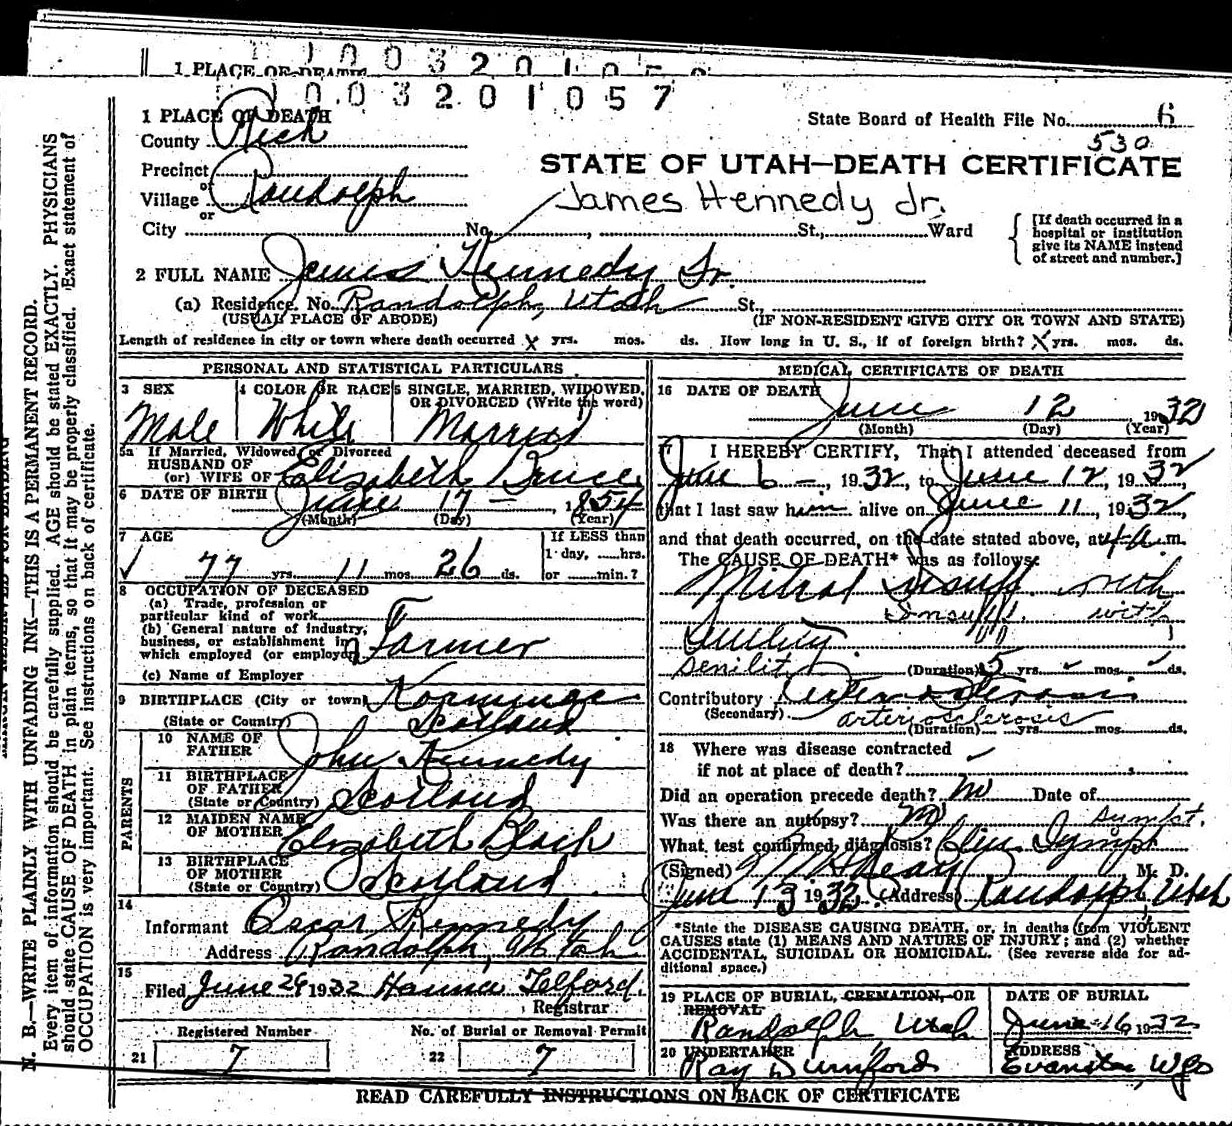 1 PLACE OF DEATH
1003201057
1 PLACE OF DEATH
County Rich
State Board of Health File No. 6
530
Precinct
or
Village Randolph
or
City No. , St., Ward
STATE OF UTAH—DEATH CERTIFICATE
James Hennedy Jr.
[If death occurred in a hospital or institution give its NAME instead of street and number.]
2 FULL NAME James Kennedy Sr.
(a) Residence. No. Randolph, Utah St.
(USUAL PLACE OF ABODE) (IF NON-RESIDENT GIVE CITY OR TOWN AND STATE)
Length of residence in city or town where death occurred X yrs. mos. ds. How long in U. S., if of foreign birth? X yrs. mos. ds.
PERSONAL AND STATISTICAL PARTICULARS
3 SEX 4 COLOR OR RACE 5 SINGLE, MARRIED, WIDOWED, OR DIVORCED (Write the word)
Male White Married
5a If Married, Widowed, or Divorced
HUSBAND OF
(or) WIFE OF Elizabeth Bruce
6 DATE OF BIRTH June 17 — , 1854
(Month) (Day) (Year)
7 AGE If LESS than
1 day, hrs.
77 yrs. 11 mos. 26 ds. or min.?
8 OCCUPATION OF DECEASED
(a) Trade, profession or
particular kind of work
(b) General nature of Industry,
business, or establishment in
which employed (or employer) Farmer
(c) Name of Employer
9 BIRTHPLACE (City or town)
(State or Country) Scotland
PARENTS
10 NAME OF
FATHER John Kennedy
11 BIRTHPLACE
OF FATHER
(State or Country) Scotland
12 MAIDEN NAME
OF MOTHER Elizabeth Black
13 BIRTHPLACE
OF MOTHER
(State or Country) Scotland
14
Informant Oscar Kennedy
Address Randolph, Utah
15
Filed June 29 1932 Hanna Telford.
Registrar
Registered Number No. of Burial or Removal Permit
21 7 22 7
MEDICAL CERTIFICATE OF DEATH
16 DATE OF DEATH
June 12 1932
(Month) (Day) (Year)
17 I HEREBY CERTIFY, That I attended deceased from
June 6 — , 1932, to June 12, 1932,
that I last saw him alive on June 11, 1932,
and that death occurred, on the date stated above, at 4 a.m.
The CAUSE OF DEATH* was as follows:
Mitral Insuff. with
Insuff. with
Senility
senility (Duration) 5 yrs. mos. ds.
Contributory Arteriosclerosis
(Secondary) arteriosclerosis
(Duration) yrs. mos. ds.
18 Where was disease contracted
if not at place of death?
Did an operation precede death? no Date of
Was there an autopsy? no
What test confirmed diagnosis? Clin. Sympt
(Signed) M. D.
June 13 1932 (Address) Randolph, Utah
*State the DISEASE CAUSING DEATH, or, in deaths from VIOLENT
CAUSES state (1) MEANS AND NATURE OF INJURY; and (2) whether
ACCIDENTAL, SUICIDAL OR HOMICIDAL. (See reverse side for ad-
ditional space.)
19 PLACE OF BURIAL, CREMATION, OR REMOVAL DATE OF BURIAL
Randolph, Utah June 16 1932
20 UNDERTAKER ADDRESS
Ray Dunford Evanston, Wyo
READ CAREFULLY INSTRUCTIONS ON BACK OF CERTIFICATE
N. B.—WRITE PLAINLY WITH UNFADING INK—THIS IS A PERMANENT RECORD.
Every item of information should be carefully supplied. AGE should be stated EXACTLY. PHYSICIANS
should state CAUSE OF DEATH in plain terms, so that it may be properly classified. Exact statement of
OCCUPATION is very important. See instructions on back of certificate.